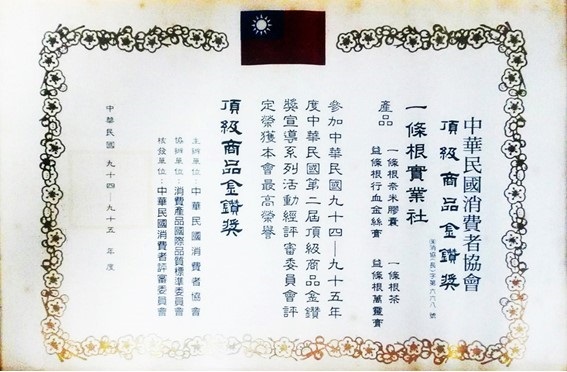 中華民國消費者協會
頂級商品金鑽獎
一條根實業社
產品
一條根奈米膠囊
一條根茶
益條根行血金絲膏
益條根萬靈膏
參加中華民國九十四—九十五年
度中華民國第二屆頂級商品金鑽
獎宣導系列活動經評審委員會評
定榮獲本會最高榮譽
頂級商品金鑽獎
主辦單位：中華民國消費者協會
協辦單位：消費產品國際品質標準委員會
核發單位：中華民國消費者評審委員會
中華民國 九十四—九十五 年度